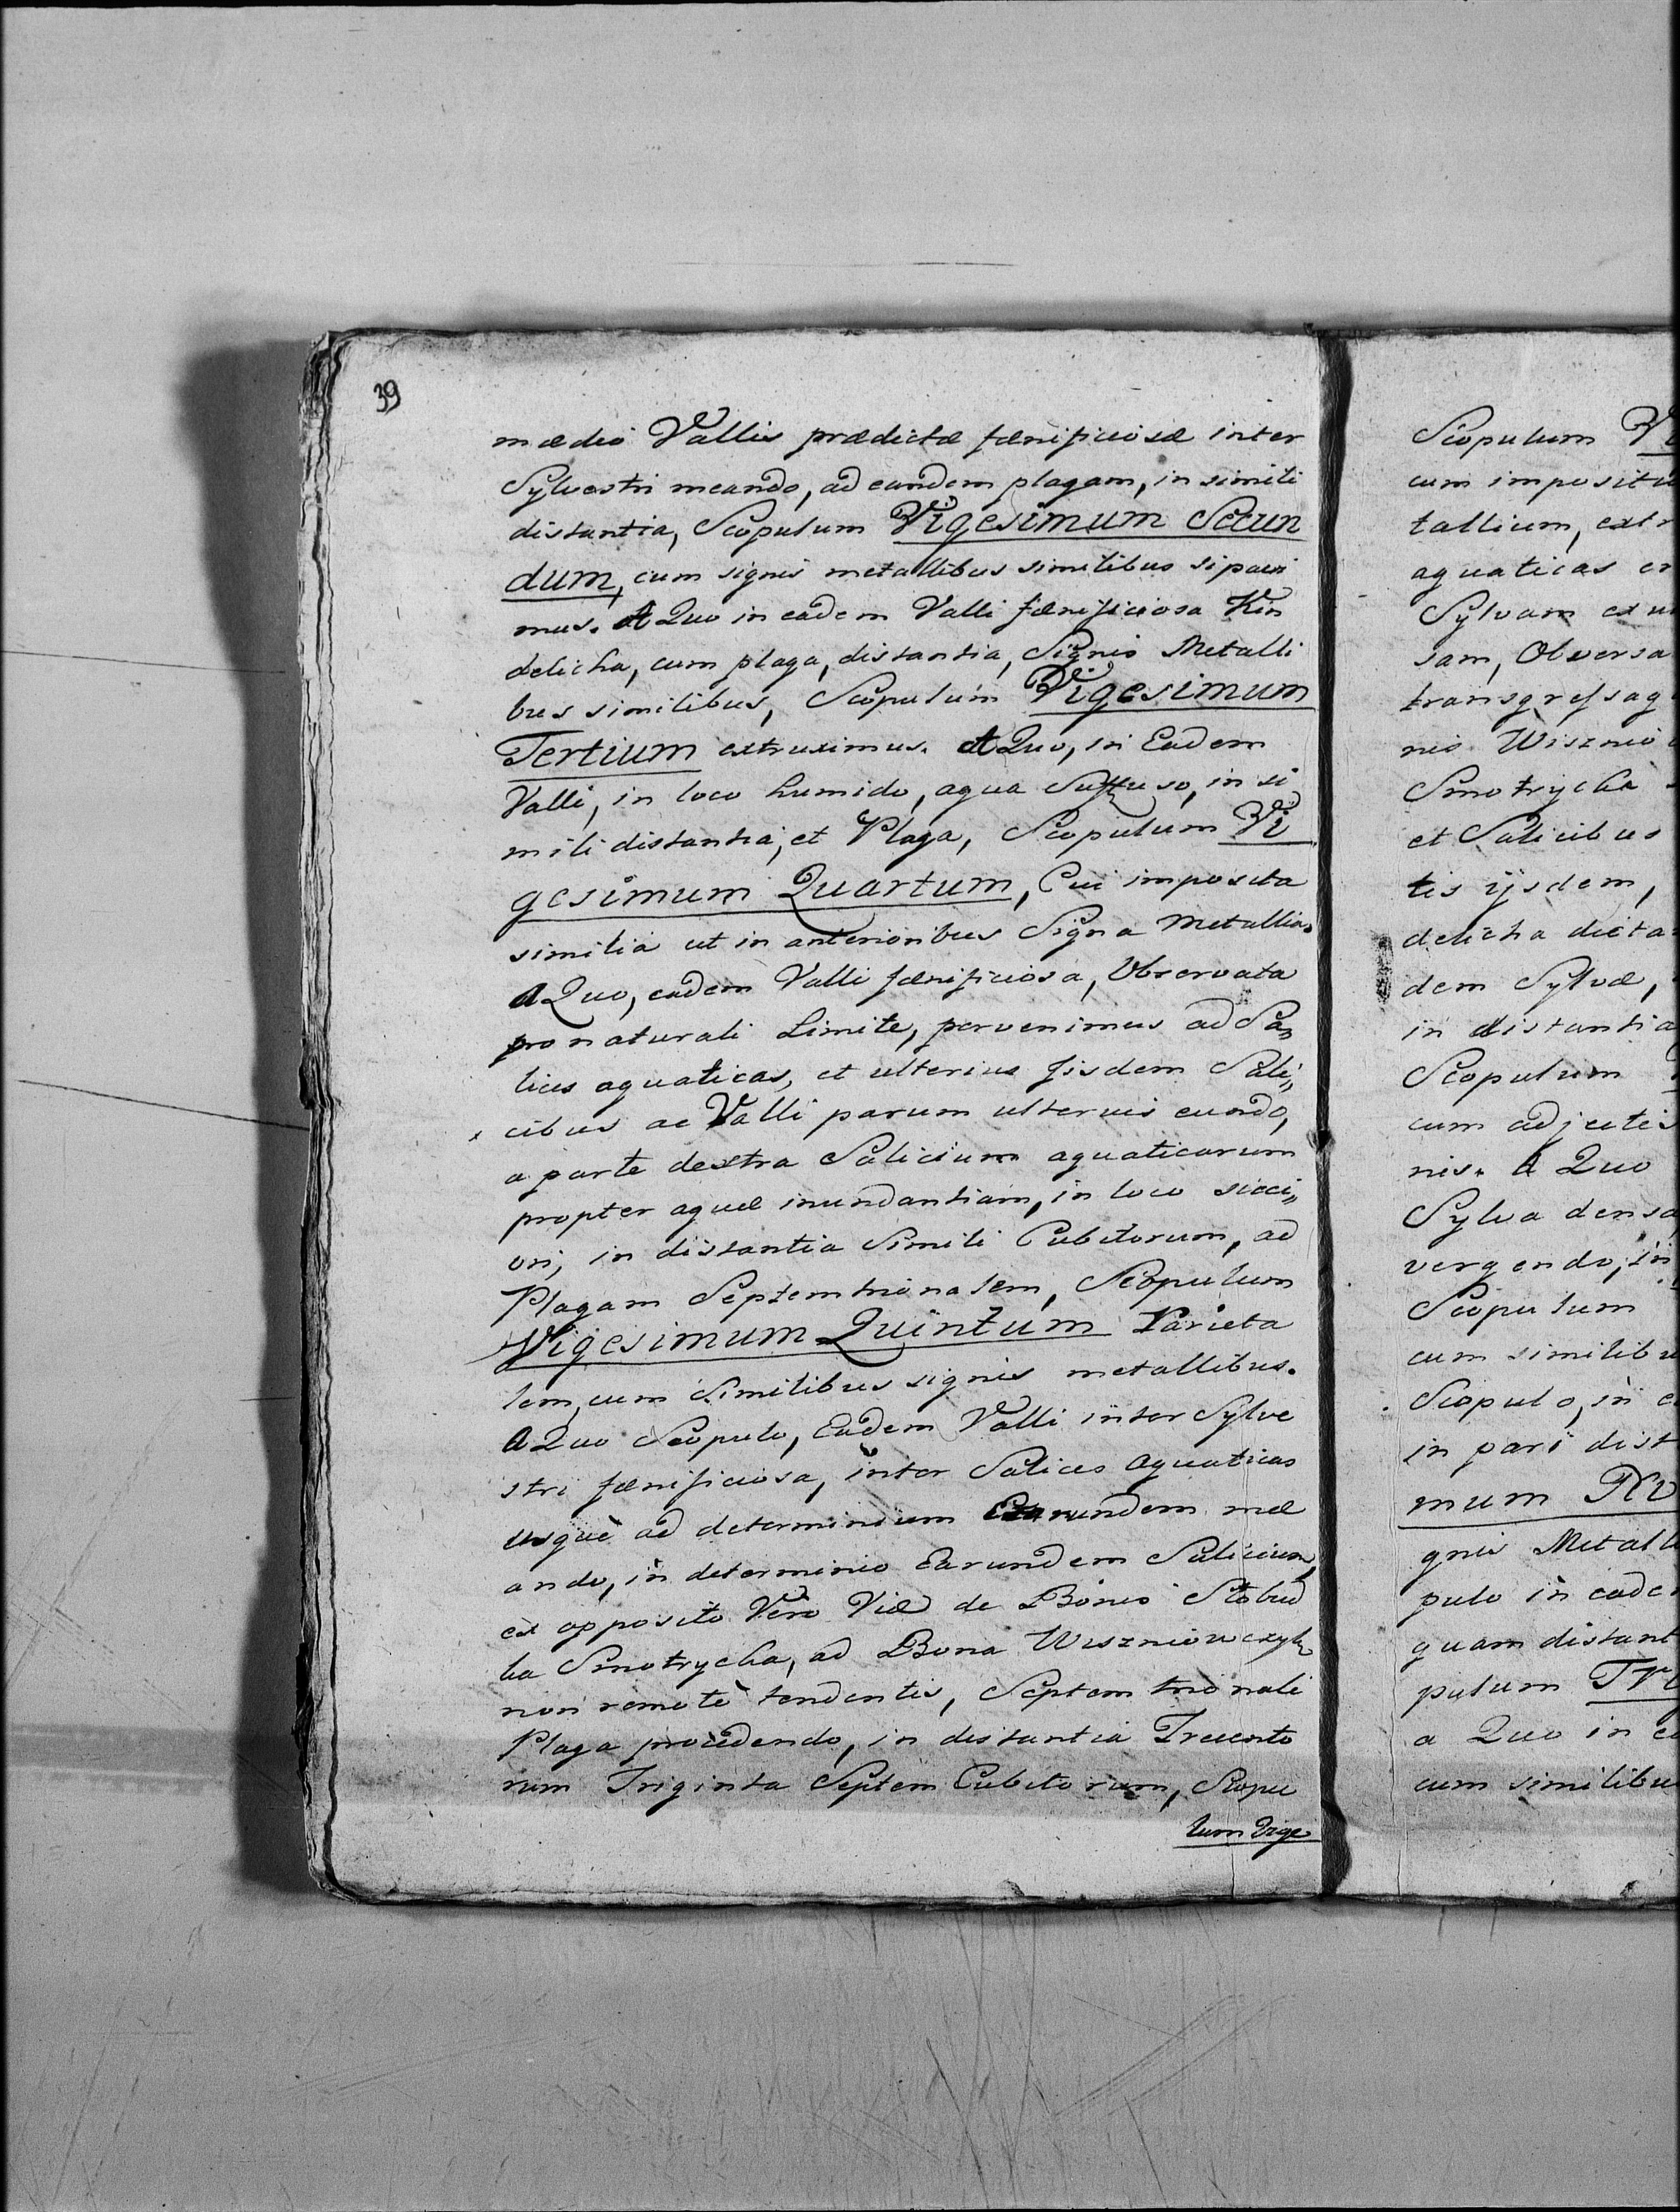 39
mædio Vallis prædictæ fænificiosæ inter
Sylvestri meando, ad eandem plagam, in simili
distantia, Scopulum Vigesimum Secun
dum, cum signis metallibus similibus sipavi
mus. A Quo in eadem Valli fænificiosa Kin
delicha, cum plaga, distantia, Signis Metalli
bus similibus, Scopulum Vigesimum
Tertium extruximus. A Quo, in Eadem
Valli, in loco humido, aqua Suffuso, in si
mili distantia, et Plaga, Scopulum Vi
gesimum Quartum, Cui imposita
similia ut in anterioribus Signa Metallia.
A Quo, eadem Valli fænificiosa, Observata
pro naturali Limite, pervenimus ad Sa,,
lices aquaticas, et ulterius Jisdem Sali,,
cibus ac Valli parum ulterius eundo,
a parte dextra Salicium aquaticarum
propter aquæ inundantiam, in loco sicci,,
ori, in distantia Simili Cubitorum, ad
Plagam Septemtrionalem, Scopulum
Vigesimum Quintum Parieta
lem, cum Similibus signis metallibus.
A Quo Scopulo, Eadem Valli inter Sylve
stri fænificiosa, inter Salices Aquaticas
usquè ad determinium Earundem me
ando, in determinio Earundem Salicium,
ex opposito Vero Viæ de Bonis Stobud
ka Smotrycha, ad Bona Wiszniowczyk
non remotè tendentis, Septemtrionali
Plaga procedendo, in distantia Trecento
rum Triginta Septem Cubitorum, Scopu
lum Vige
Scopulum Vi
cum imposit
tallium, extr
aquaticas
Sylvam
sam, Obversa
transgressaq
nis Wisznio
Smotrycha
et Salicibus
tis ijsdem,
delicha dicta
dem Sylvæ,
in distantia
Scopulum
cum adjectis
nis. A Quo
Sylva densa
vergendo, in
Scopulum
cum similibu
Scopulo, in e
in pari dist
mum No
gnis Metall
pulo in eade
quam distant
pulum Tri
a Quo in e
cum similibu